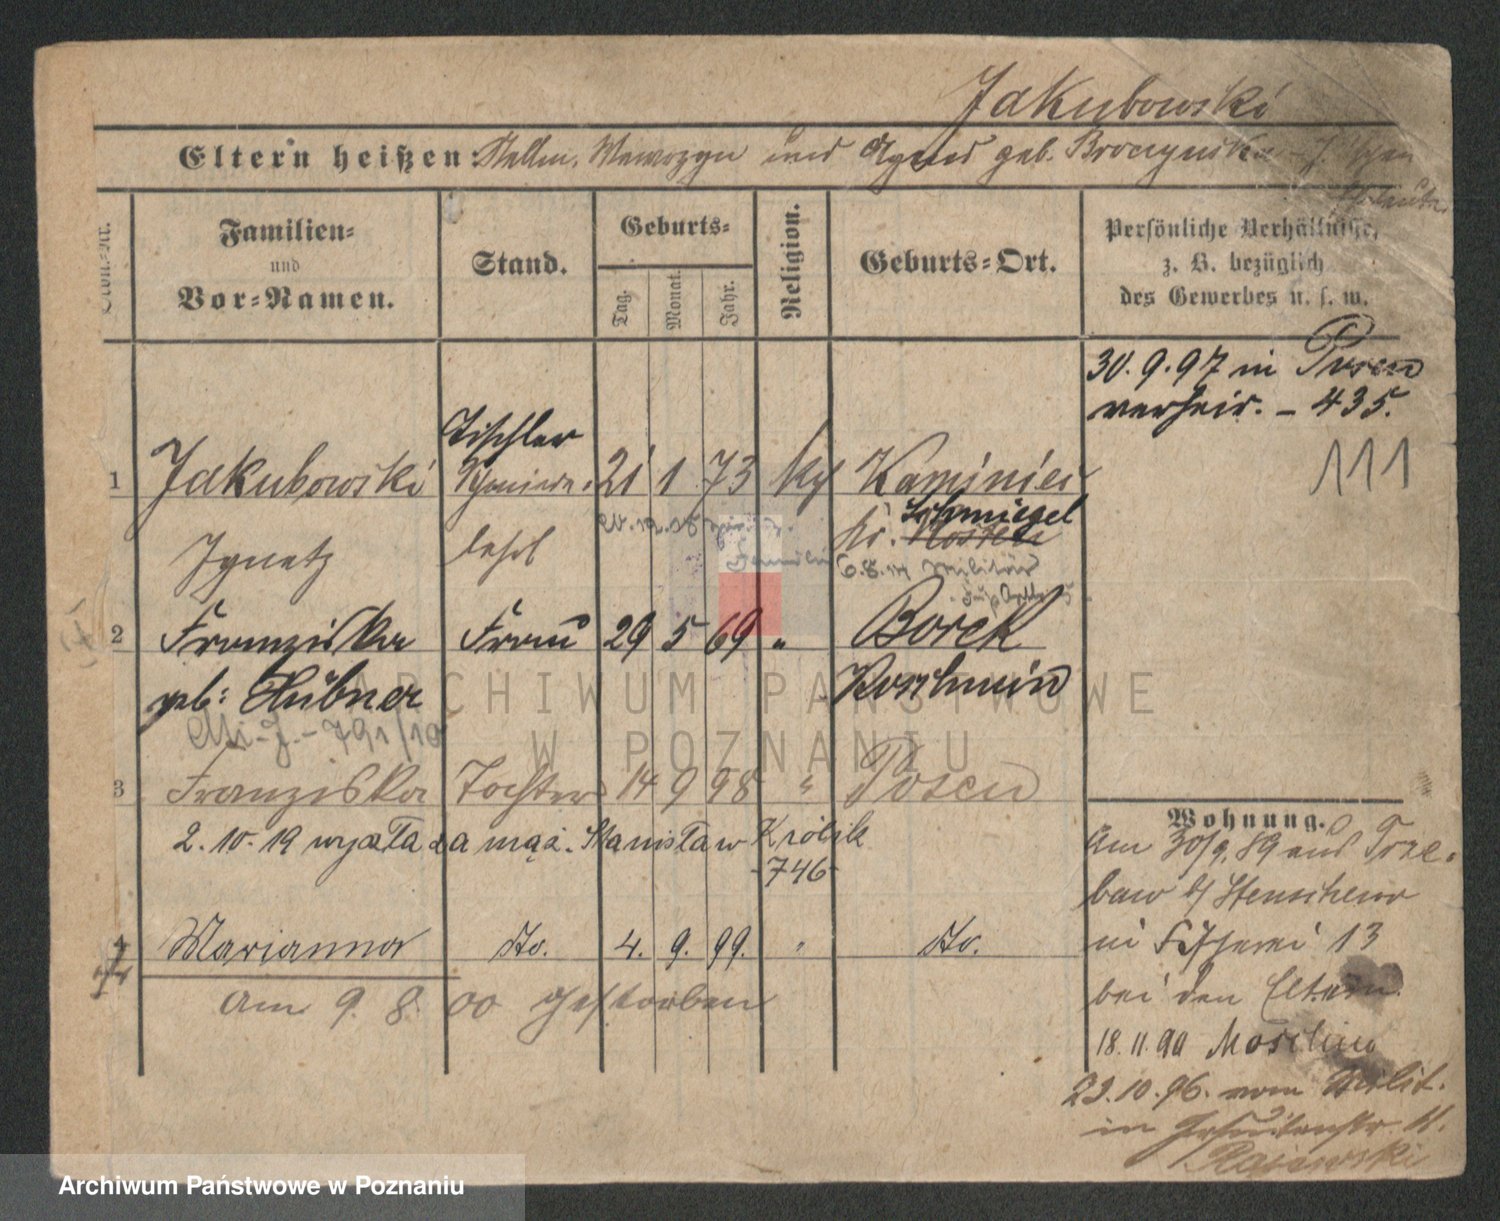 Jakubowski
Eltern heißen: Stellm. Wawrzyn und Agnes geb. Broczynska
Familien-
und
Vor-Namen.
Stand.
Geburts-
Tag.
Monat.
Jahr.
Religion.
Geburts-Ort.
Persönliche Verhältnisse,
z. B. bezüglich
des Gewerbes u. s. w.
30.9.97 in Posen
verheir. - 435.
111
Tischler
1 Jakubowski 21 1 73 Kaminiec
Schmiegel
Kr. Kosten
Ignatz lehrl
6.8.14 Militär
2 Franziska Frau 29 5 69 " Borek
geb: Hübner Koschmin
791/10
3 Franziska Tochter 14 9 98 " Posen
2.10.19 wyszła za mąż. Stanisław Królik
-746-
4 Marianna dto. 4. 9. 99. " dto.
Am 9. 8. 00 gestorben
Wohnung.
Am 30/9.89 aus Trze-
baw b/ Stenschewo
in Fischerei 13
bei den Eltern.
18.11.90 Moschino
23.10.96. vom Milit.
in Jesuitenstr. 11.
Rajewski
ARCHIWUM PAŃSTWOWE
W POZNANIU
Archiwum Państwowe w Poznaniu